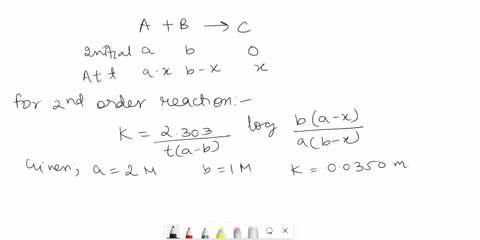 A + B → C
Initial a b 0
At t a-x b-x x
for 2nd order reaction:-
K = 2.303/t(a-b) log b(a-x)/a(b-x)
Given; a = 2 M b = 1M K = 0.0350 m